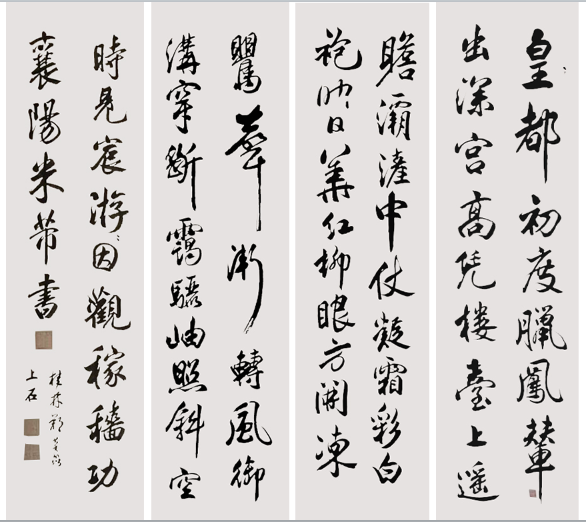 皇都初度臘鳳輦
出深宫高凭樓臺上遥
瞻灞滻中仗凝霜彩白
袍映日華紅柳眼方開凍
鸎聲漸轉風御
溝穿斷靄驪岫照斜空
時見宸游因觀稼穡功
襄陽米芾書
桂林鄭
上石